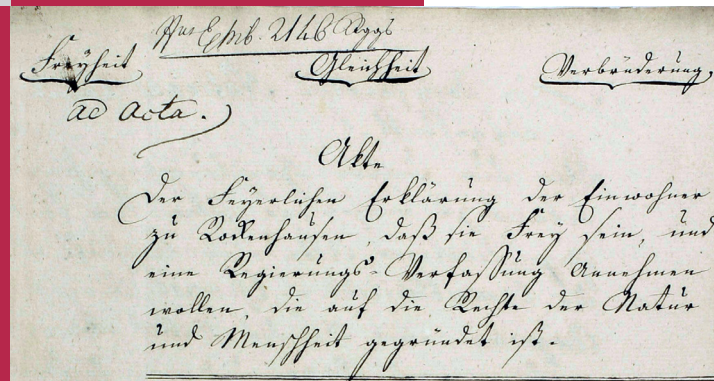 2146
Freyheit Gleichheit Verbrüderung,
ad acta.
Akte
Der Feyerlichen Erklärung der Einwohner
zu Rockenhausen, daß sie Frey sein, und
eine Regierungs-Verfassung Annehmen
wollen, die auf die Rechte der Natur
und Menschheit gegründet ist.